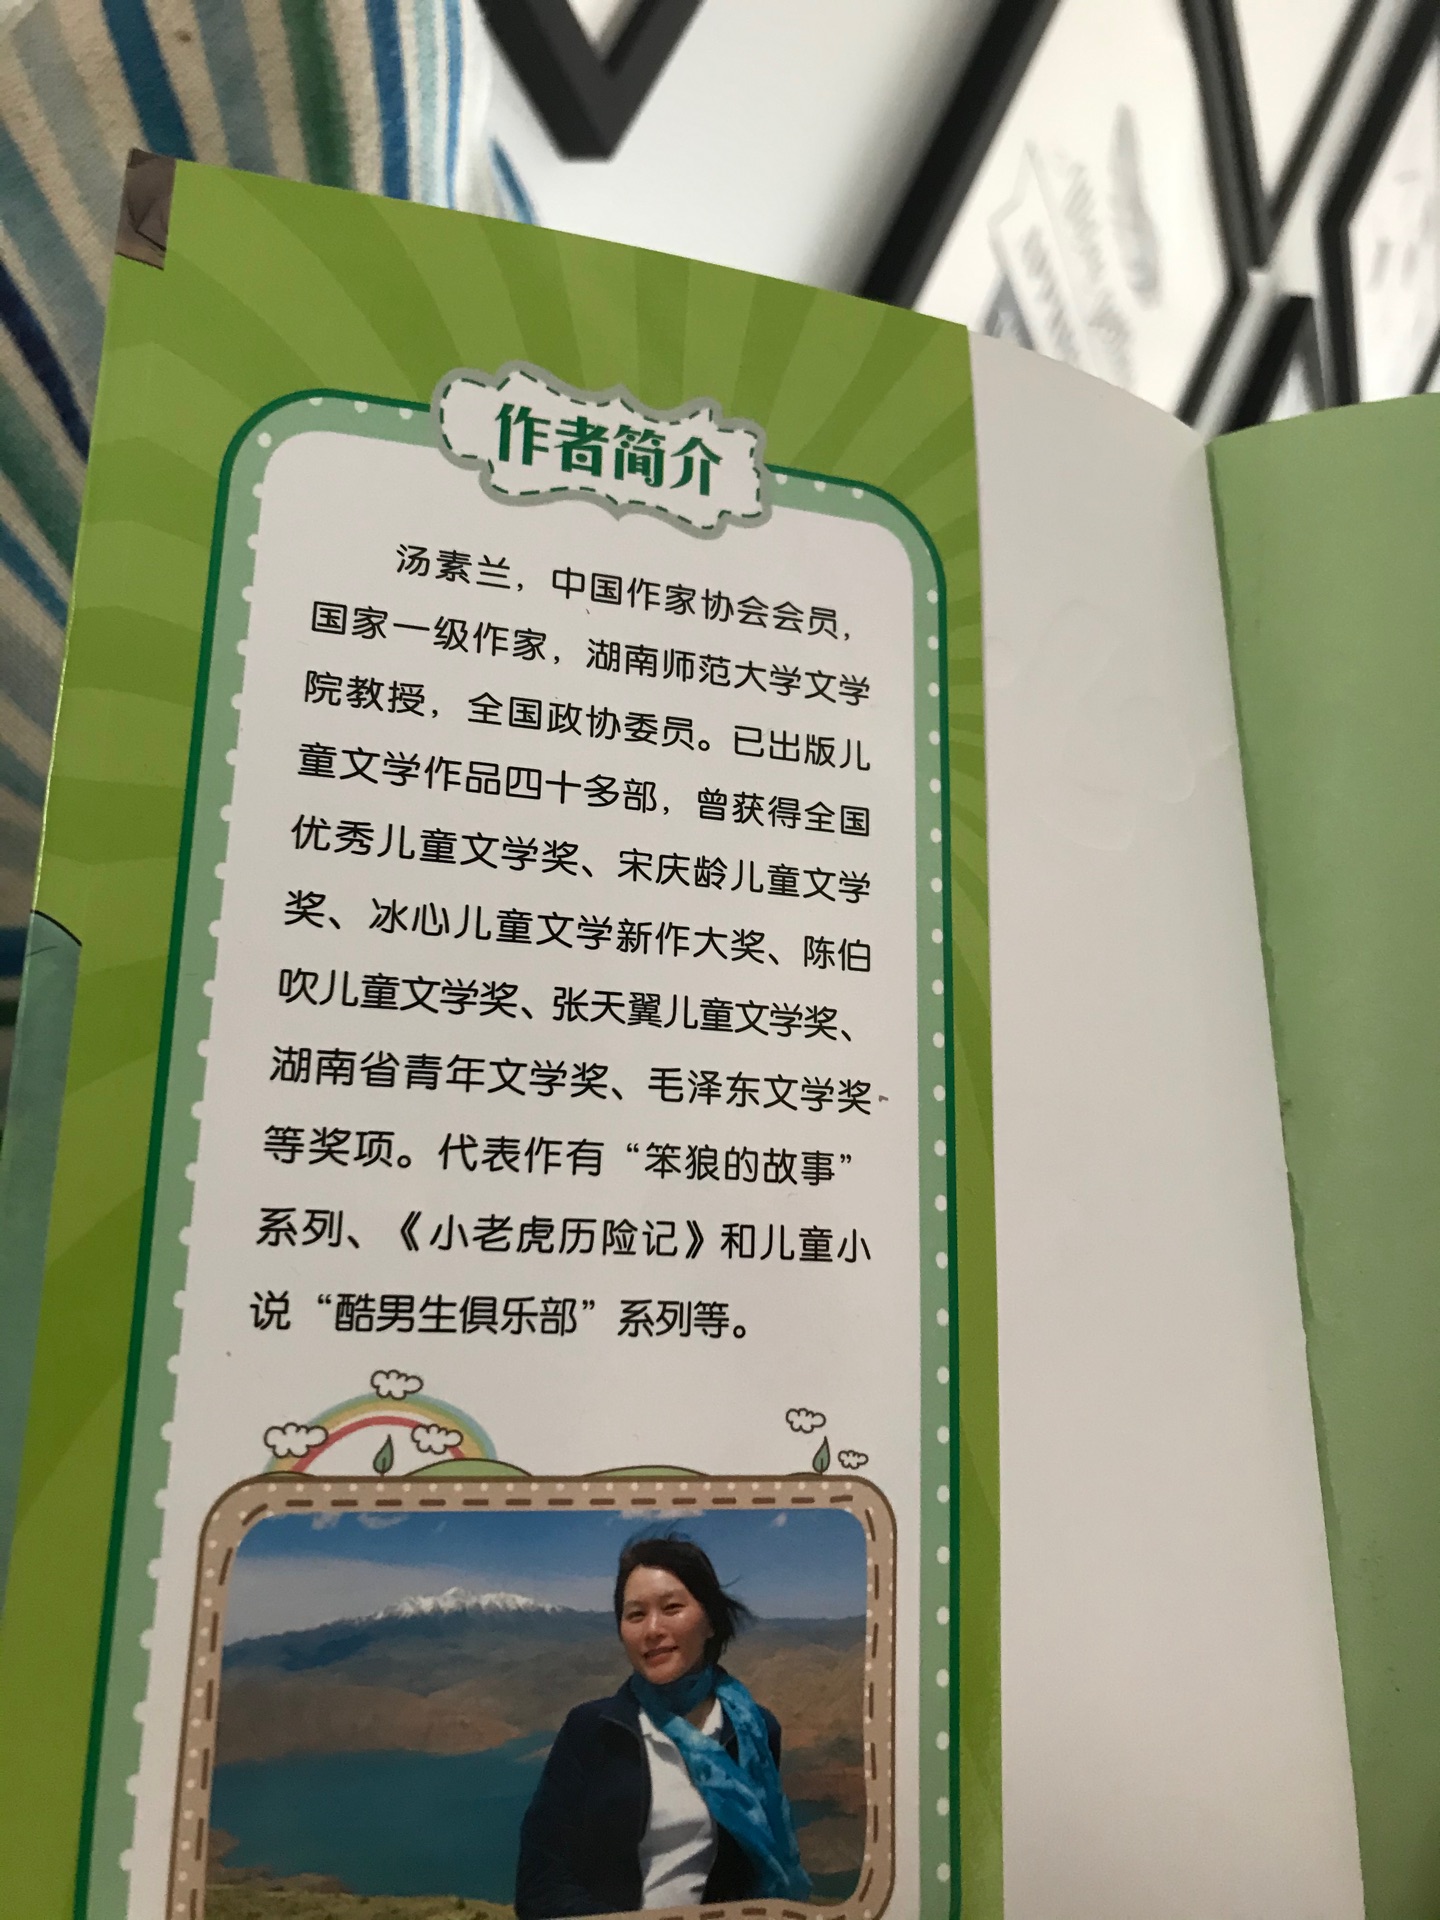 作者简介
汤素兰，中国作家协会会员，
国家一级作家，湖南师范大学文学
院教授，全国政协委员。已出版儿
童文学作品四十多部，曾获得全国
优秀儿童文学奖、宋庆龄儿童文学
奖、冰心儿童文学新作大奖、陈伯
吹儿童文学奖、张天翼儿童文学奖、
湖南省青年文学奖、毛泽东文学奖
等奖项。代表作有“笨狼的故事”
系列、《小老虎历险记》和儿童小
说“酷男生俱乐部”系列等。